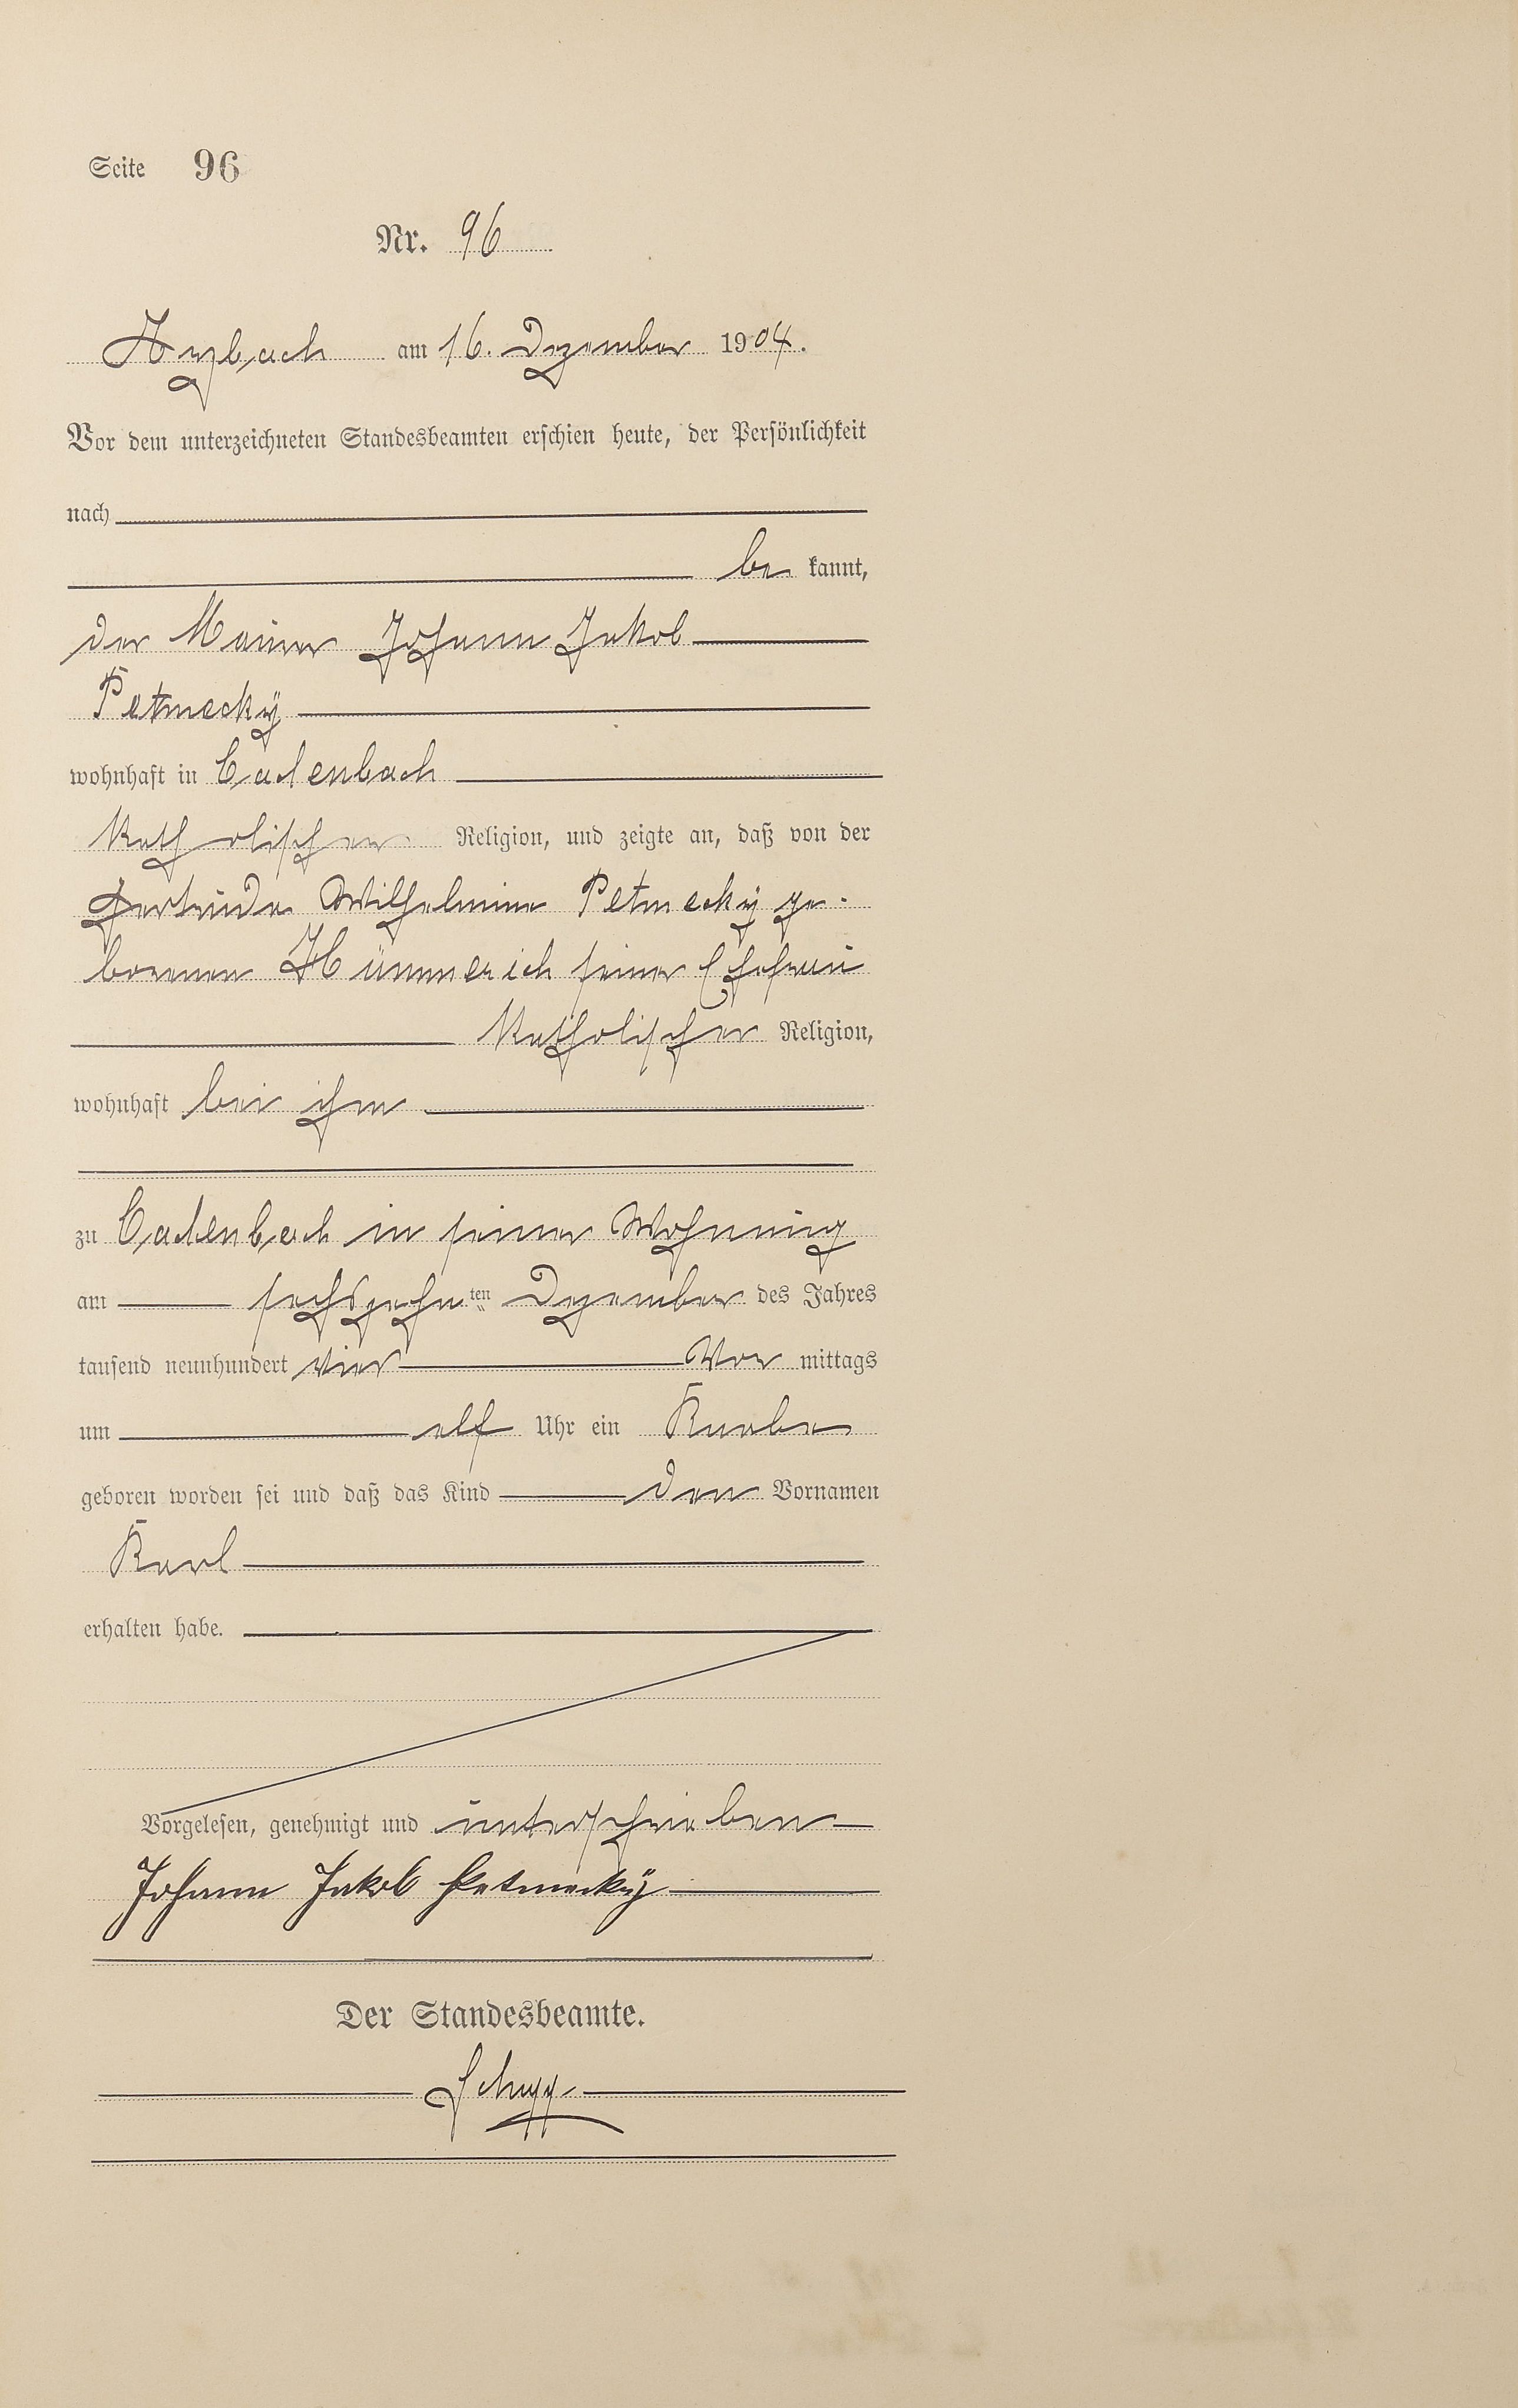 Seite 96
Nr. 96
Arzbach am 16. Dezember 1904.
Vor dem unterzeichneten Standesbeamten erschien heute, der Persönlichkeit
nach
be kannt,
der Maurer Johann Jakob
Petmecky
wohnhaft in Cadenbach
katholischer Religion, und zeigte an, daß von der
Gertrude Wilhelmine Petmecky ge-
borenen Hümmerich seiner Ehefrau
katholischer Religion,
wohnhaft bei ihm
zu Cadenbach in seiner Wohnung
am sechszehnten Dezember des Jahres
tausend neunhundert vier Vor mittags
um elf Uhr ein Knabe
geboren worden sei und daß das Kind den Vornamen
Karl
erhalten habe.
Vorgelesen, genehmigt und unterschrieben
Johann Jakob Petmecky
Der Standesbeamte.
Schupp